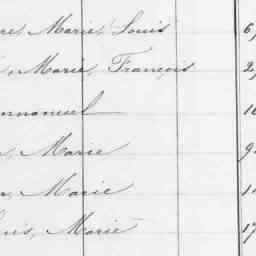 re, Marie, Louis 6,
Marie, François 2,
mmanuel 16
Marie 9
Marie 1
uis, Marie 17